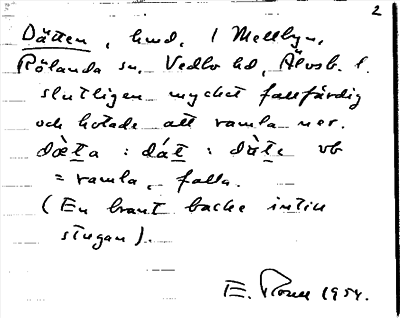 2
Dätten, hmd, 1 Mellbyn,
Rölanda sn, Vedbo hd, Älvsb. l.
slutligen mycket fallfärdig
och hotade att ramla ner.
dæta : dát : dàte vb
= ramla, falla.
(En brant backe intill
stugan).
E. 1954.